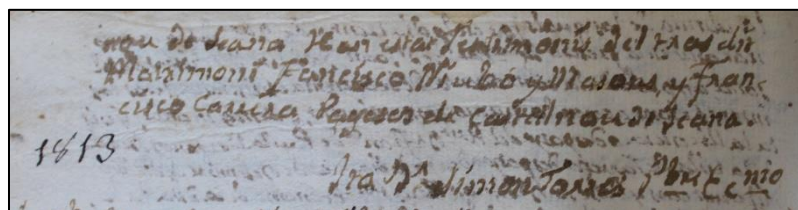 nou de Seana Han estat Testimonis del sus dit
Matrimoni Francisco Niubó y Masons, y Fran-
cisco Carrera Pagesos de Castellnou de Seana.
1813
Simon Torres